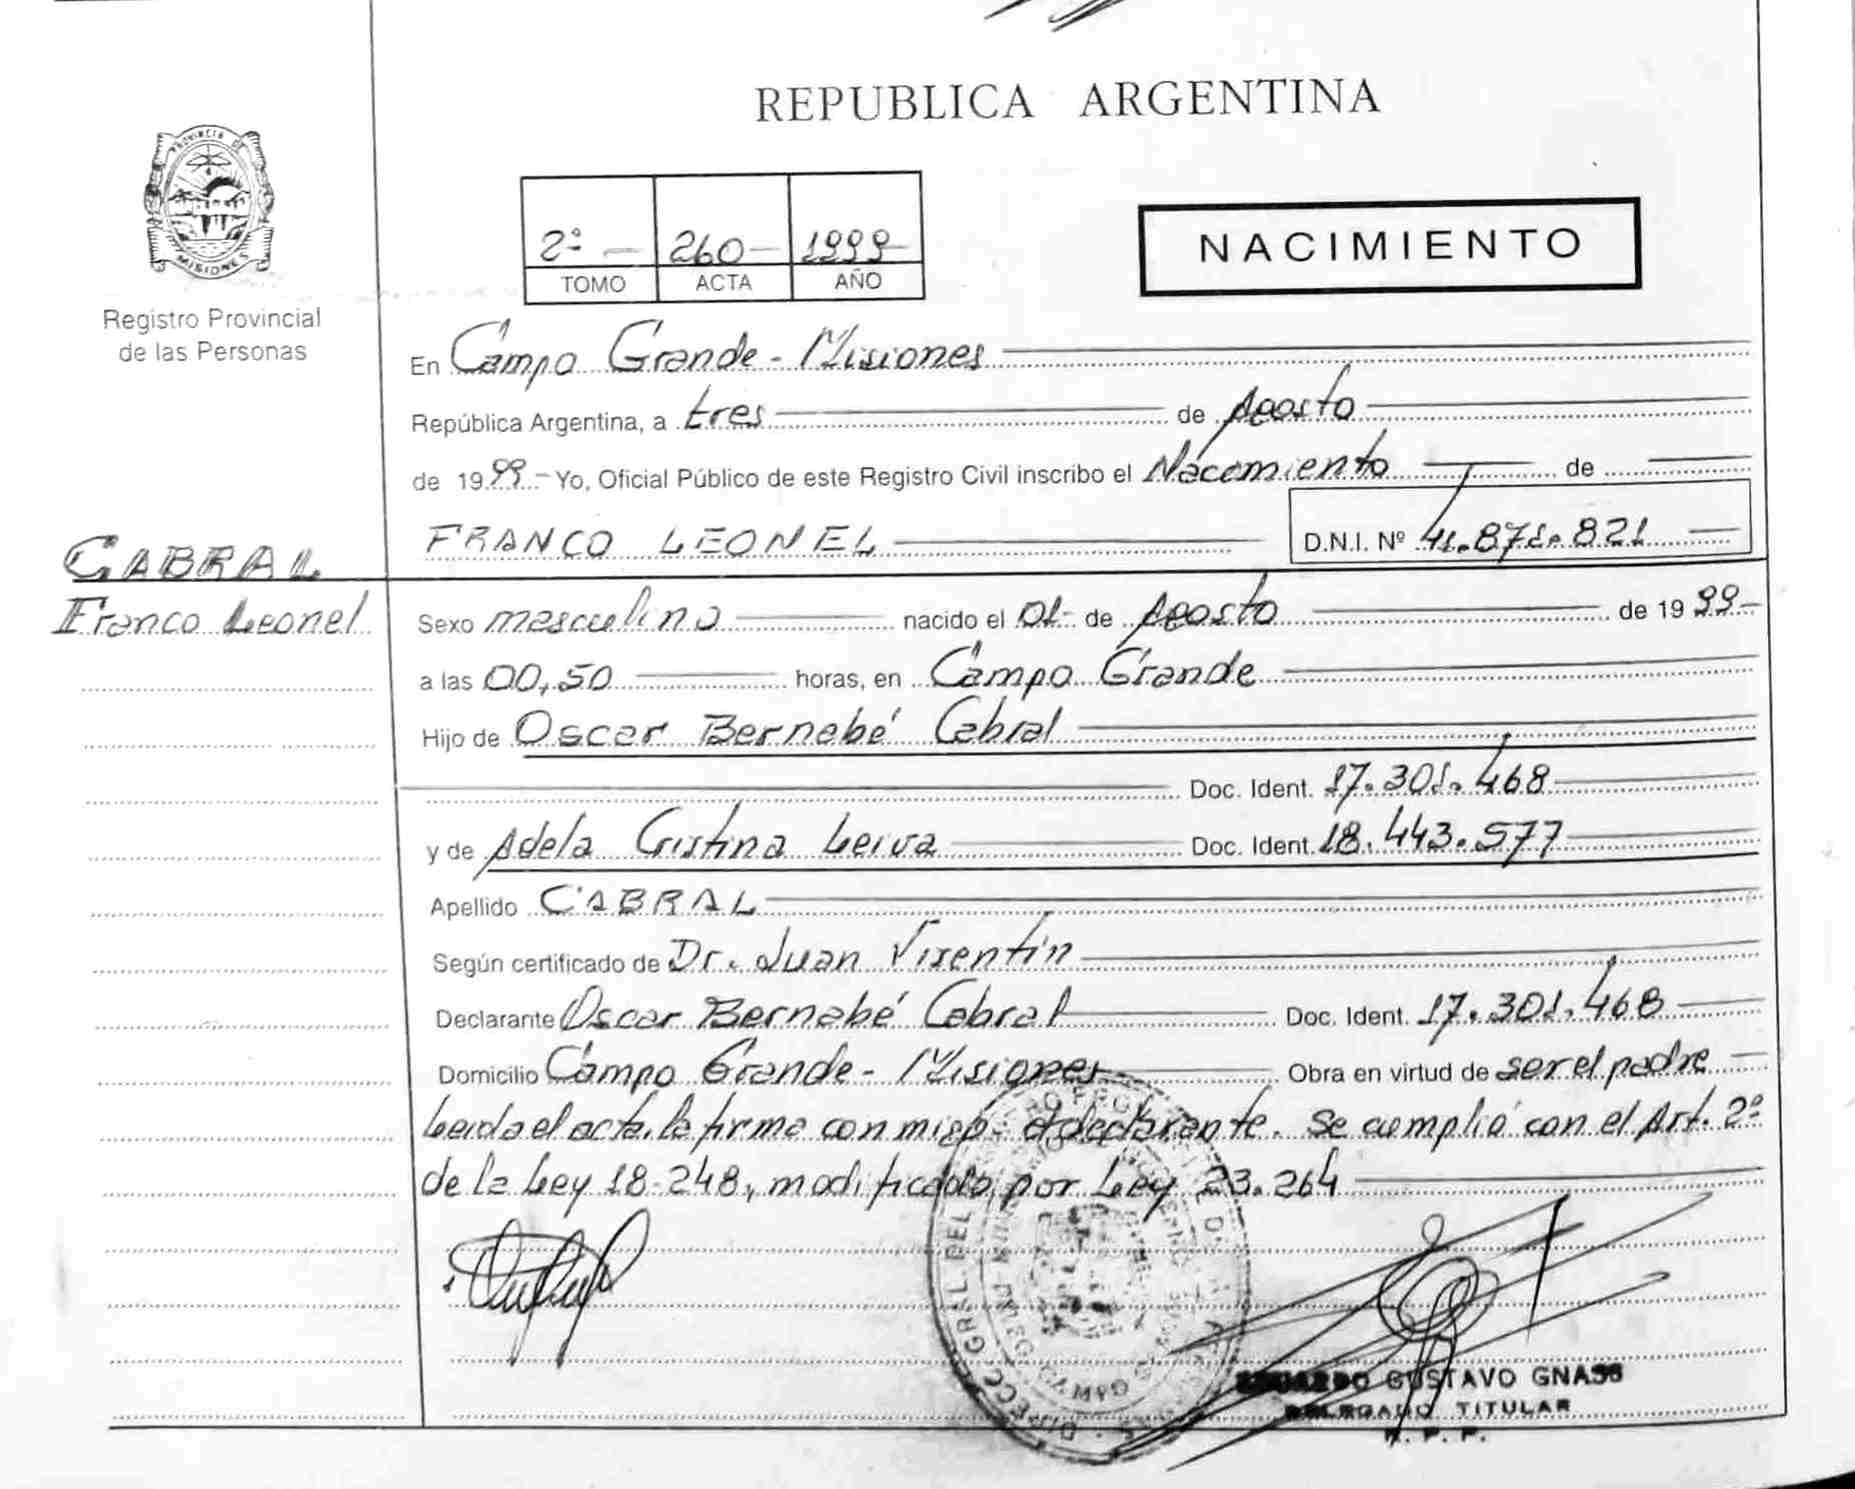 REPUBLICA ARGENTINA
PROVINCIA DE
MISIONES
Registro Provincial
de las Personas
2º - 260- 1999-
TOMO ACTA AÑO
NACIMIENTO
En Campo Grande - Misiones
República Argentina, a tres de Agosto
de 1999.- Yo, Oficial Público de este Registro Civil inscribo el Nacimiento de
FRANCO LEONEL D.N.I. Nº 41.871.821
CABRAL
Franco Leonel
Sexo masculino nacido el 01- de Agosto de 1999-
a las 00,50 horas, en Campo Grande
Hijo de Oscar Bernabé Cabral
Doc. Ident. 17.301.468
y de Adela Cristina Leiva Doc. Ident. 18.443.577
Apellido CABRAL
Según certificado de Dr. Juan Visentín
Declarante Oscar Bernabé Cabral Doc. Ident. 17.301.468
Domicilio Campo Grande - Misiones Obra en virtud de ser el padre
Leida el acta, la firma conmigo el declarante. Se cumplió con el Art. 2º
de la Ley 18.248, modificado por Ley 23.264
DIRECC. GRAL. DEL
GUSTAVO GNASS
DELEGADO TITULAR
R. P. P.